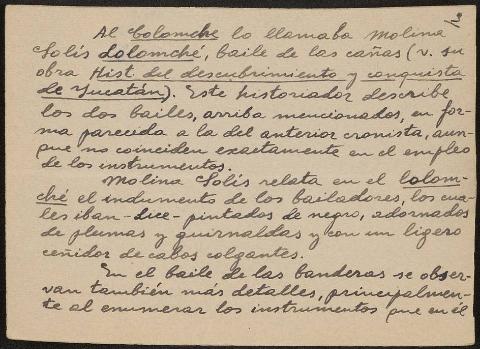 Al Colomche lo llamaba Molina
Solís Lolomché, baile de las cañas (v. su
obra Hist. del descubrimiento y conquista
de Yucatán). Este historiador describe
los dos bailes, arriba mencionados, en for-
ma parecida a la del anterior cronista, aun-
que no coinciden exactamente en el empleo
de los instrumentos.
Molina Solís relata en el Lolom-
ché el indumento de los bailadores, los cua-
les iban -dice- pintados de negro, adornados
de plumas y guirnaldas y con un ligero
ceñidor de cabos colgantes.
En el baile de las banderas se obser-
van también más detalles, principalmen-
te al enumerar los instrumentos que en él